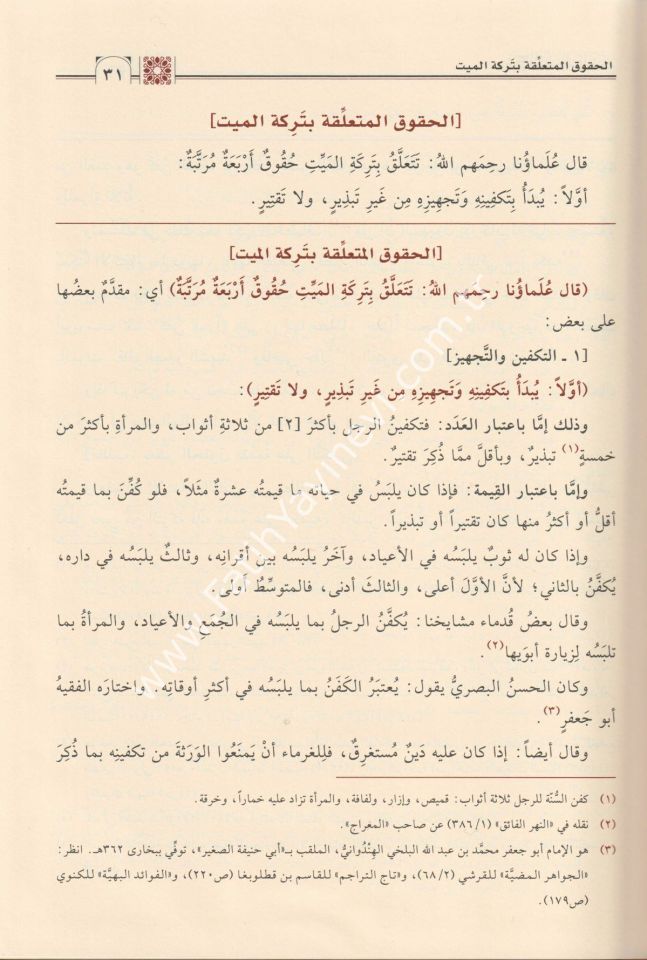 الحقوق المتعلِّقة بتَرِكة الميت
٣١
[الحقوق المتعلِّقة بتَرِكة الميت]
قال عُلَماؤُنا رحِمَهم اللهُ: تَتَعَلَّقُ بِتَرِكَةِ المَيِّتِ حُقُوقٌ أَرْبَعَةٌ مُرَتَّبَةٌ:
أوَّلاً: يُبدَأُ بِتَكفِينِهِ وَتَجهِيزِهِ مِن غَيرِ تَبذِيرٍ، ولا تَقتِيرٍ.
[الحقوق المتعلِّقة بتَرِكة الميت]
(قال عُلَماؤُنا رحِمَهم اللهُ: تَتَعَلَّقُ بِتَرِكَةِ المَيِّتِ حُقُوقٌ أَرْبَعَةٌ مُرَتَّبَةٌ) أي: مقدَّمٌ بعضُها
على بعض:
[١ ـ التكفين والتَّجهيز]
(أوَّلاً: يُبدَأُ بتَكفِينِهِ وَتَجهِيزِهِ مِن غَيرِ تَبذِيرٍ، ولا تَقتِيرٍ):
وذلك إمَّا باعتبار العَدَد: فتكفينُ الرجل بأكثرَ [٢] من ثلاثةِ أثواب، والمرأةِ بأكثرَ من
خمسةٍ(١) تبذيرٌ، وبأقلَّ ممَّا ذُكِرَ تقتيرٌ.
وإمَّا باعتبار القِيمة: فإذا كان يلبَسُ في حياته ما قيمتُه عشرةٌ مثَلاً، فلو كُفِّنَ بما قيمتُه
أقلُّ أو أكثرُ منها كان تقتيراً أو تبذيراً.
وإذا كان له ثوبٌ يلبَسُه في الأعياد، وآخَرُ يلبَسُه بين أقرانِه، وثالثٌ يلبَسُه في داره،
يُكفَّنُ بالثاني؛ لأنَّ الأوَّلَ أعلى، والثالثَ أدنى، فالمتوسِّطُ أَولَى.
وقال بعضُ قُدماء مشايخنا: يُكفَّنُ الرجلُ بما يلبَسُه في الجُمَع والأعياد، والمرأةُ بما
تلبَسُه لِزيارة أبوَيها(٢).
وكان الحسنُ البصريُّ يقول: يُعتبَرُ الكَفَنُ بما يلبَسُه في أكثرِ أوقاتِه. واختارَه الفقيهُ
أبو جَعفرٍ(٣).
وقال أيضاً: إذا كان عليه دَينٌ مُستغرِقٌ، فلِلغرماء أنْ يَمنَعُوا الوَرَثةَ من تكفينِه بما ذُكِرَ
(١) كفن السُّنَّة للرجل ثلاثة أثواب: قميص، وإزار، ولفافة، والمرأة تزاد عليه خماراً، وخرقة.
(٢) نقله في «النهر الفائق» (١/ ٣٨٦) عن صاحب «المعراج».
(٣) هو الإمام أبو جعفر محمَّد بن عبد الله البلخي الهِنْدُوانيُّ، الملقب بـ«أبي حنيفة الصغير»، توفِّي ببخارى ٣٦٢هـ. انظر:
«الجواهر المضيَّة» للقرشي (٢/ ٦٨)، و«تاج التراجم» للقاسم بن قطلوبغا (ص٢٢٠)، و«الفوائد البهيَّة» للكنوي
(ص١٧٩).
www.FatihYayinevi.com.tr